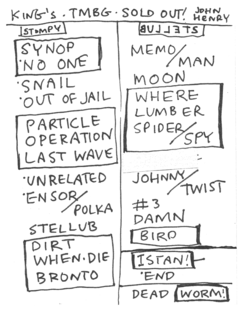 KING'S · TMBG · SOLD OUT! JOHN HENRY
STOMPY
SYNOP
· NO ONE
· SNAIL
· OUT OF JAIL
PARTICLE
OPERATION
LAST WAVE
· UNRELATED
· ENSOR/
POLKA
STELLUB
DIRT
WHEN · DIE
BRONTO
BULLETS
MEMO/
MAN
MOON
WHERE
LUMBER
SPIDER/
SPY
JOHNNY/
TWIST
#3
DAMN
BIRD
ISTAN!
· END
DEAD WORM!